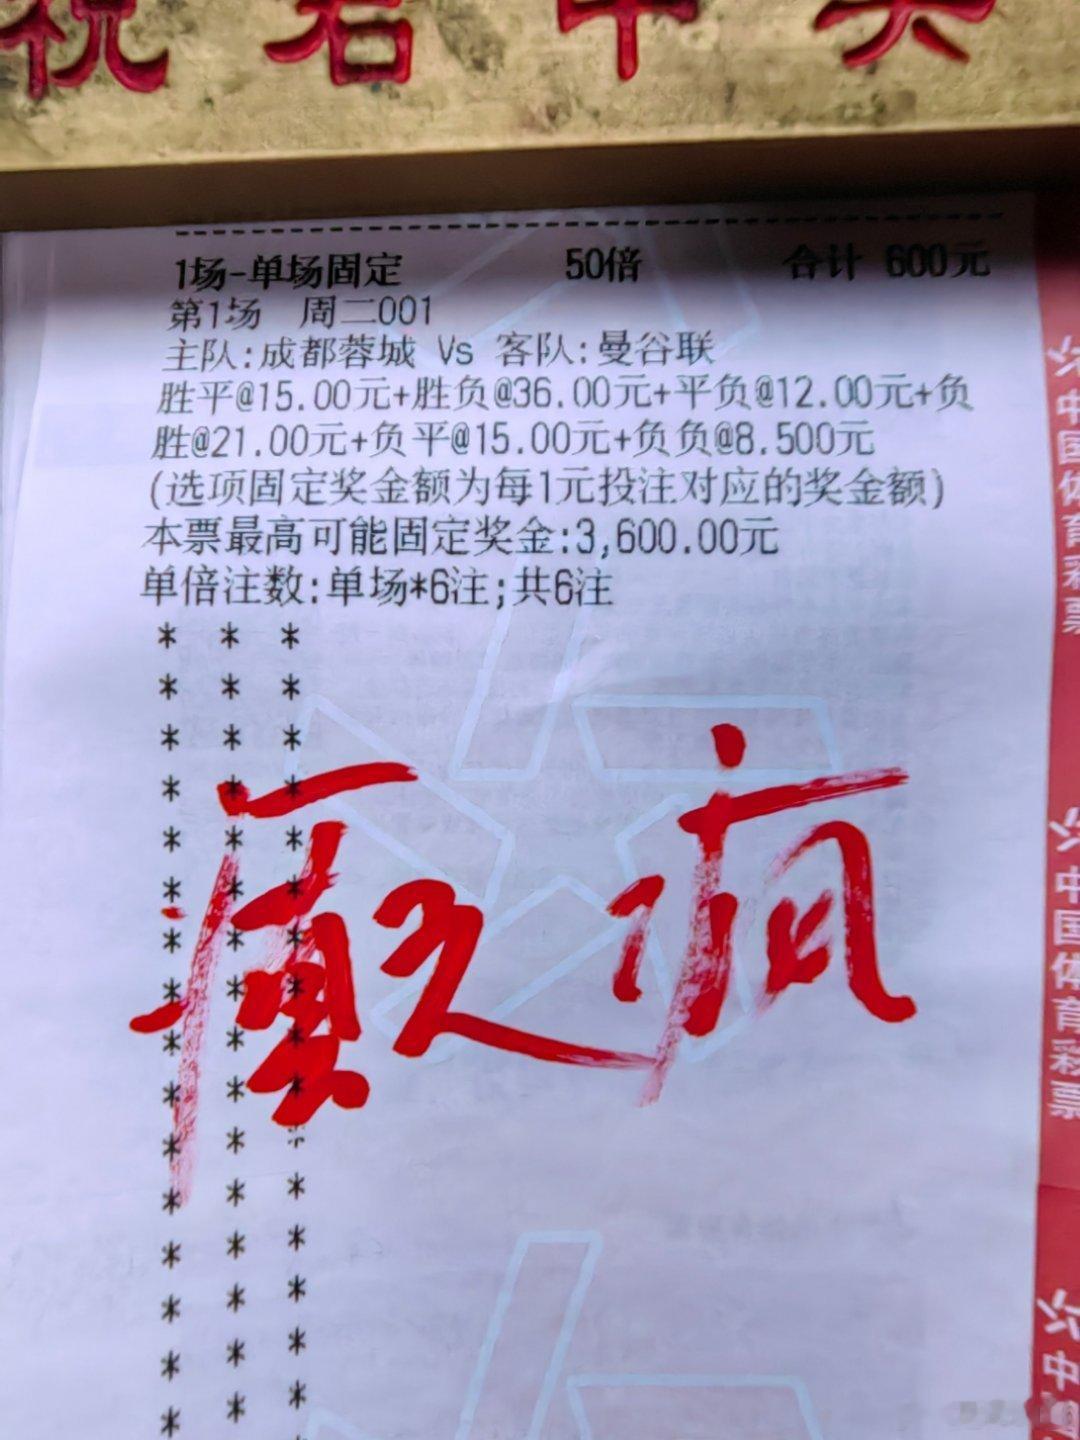 祝君中奖
1场-单场固定 50倍 合计 600元
第1场 周二001
主队:成都蓉城 Vs 客队:曼谷联
胜平@15.00元+胜负@36.00元+平负@12.00元+负
胜@21.00元+负平@15.00元+负负@8.500元
(选项固定奖金额为每1元投注对应的奖金额)
本票最高可能固定奖金:3,600.00元
单倍注数:单场*6注;共6注
* * *
* * *
* * *
* * *
* * *
* * *
* * *
* * *
* * *
* * *
* * *
* * *
* * *
* * *
* * *
* * *
癫疯
中国体育彩票
中国体育彩票
中